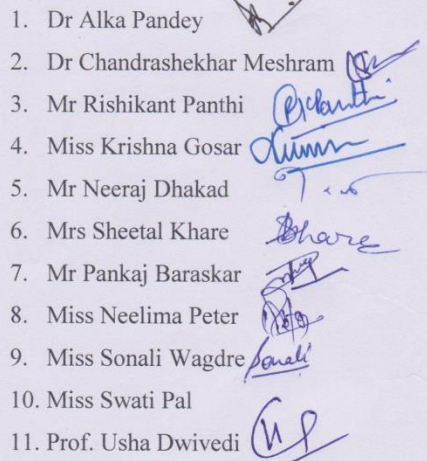 1. Dr Alka Pandey
2. Dr Chandrashekhar Meshram
3. Mr Rishikant Panthi
4. Miss Krishna Gosar
5. Mr Neeraj Dhakad
6. Mrs Sheetal Khare
7. Mr Pankaj Baraskar
8. Miss Neelima Peter
9. Miss Sonali Wagdre Sonali
10. Miss Swati Pal
11. Prof. Usha Dwivedi